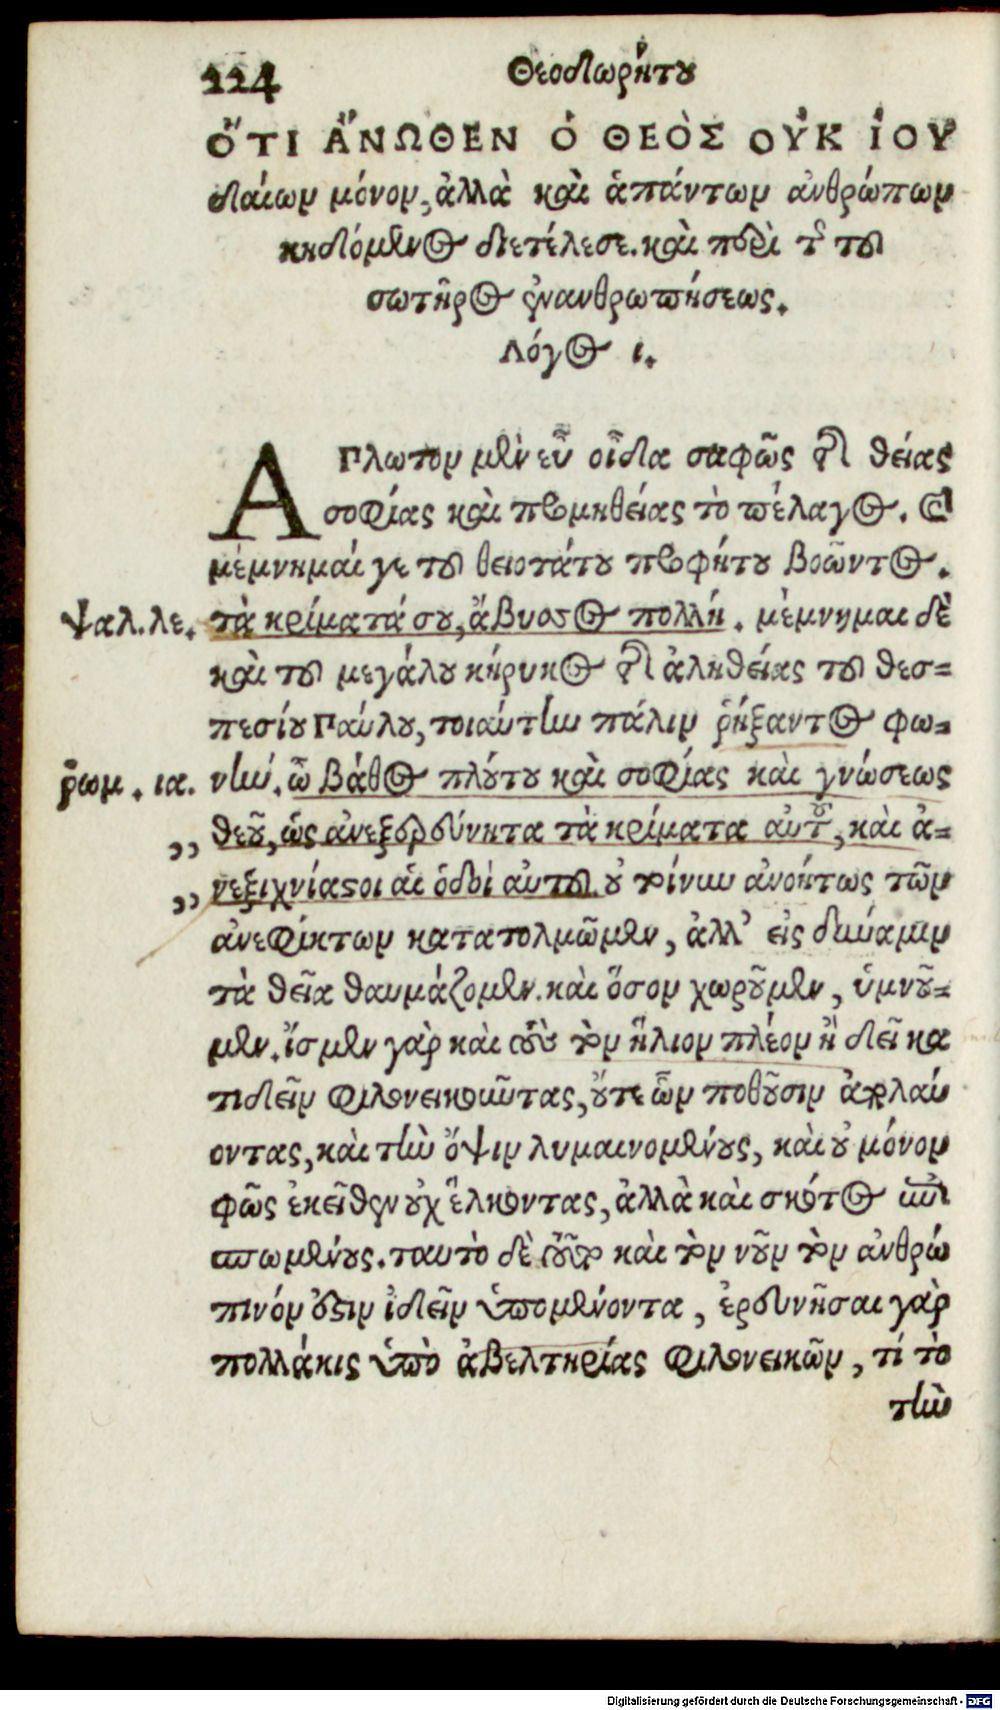 224 Θεοδωρήτου
ὍΤΙ ἌΝΩΘΕΝ Ὁ ΘΕῸΣ ΟΥ̓Κ ἸΟΥ
δαίων μόνον, ἀλλὰ καὶ ἁπάντων ἀνθρώπων
κηδόμενος διετέλεσε. καὶ περὶ τῆς τοῦ
σωτῆρος ἐνανθρωπήσεως.
Λόγος ι.
ΑΠλωτον μὲν εὖ οἶδα σαφῶς τῆς θείας
σοφίας καὶ προμηθείας τὸ πέλαγος. καὶ
μέμνημαί γε τοῦ θειοτάτου προφήτου βοῶντος.
Ψαλ. λε. τὰ κρίματά σου, ἄβυσσος πολλή. μέμνημαι δὲ
καὶ τοῦ μεγάλου κήρυκος τῆς ἀληθείας τοῦ θεσ-
πεσίου Παύλου, τοιαύτην πάλιν ῥήξαντος φω-
ῥωμ. ια. νήν. ὦ βάθος πλούτου καὶ σοφίας καὶ γνώσεως
,, θεοῦ, ὡς ἀνεξερεύνητα τὰ κρίματα αὐτοῦ, καὶ ἀ-
,, νεξιχνίαστοι αἱ ὁδοὶ αὐτοῦ. οὐ τοίνυν ἀνοήτως τῶν
ἀνεφίκτων κατατολμῶμεν, ἀλλ' εἰς δύναμιν
τὰ θεῖα θαυμάζομεν. καὶ ὅσον χωροῦμεν, ὑμνοῦ-
μεν. ἴσμεν γὰρ καὶ τοὺς τὸν ἥλιον πλέον ἢ δεῖ κα
τιδεῖν φιλονεικοῦντας, οὔτε ὧν ποθοῦσιν ἀπολαύ
οντας, καὶ τὴν ὄψιν λυμαινομένους, καὶ οὐ μόνον
φῶς ἐκεῖθεν οὐχ ἕλκοντας, ἀλλὰ καὶ σκότος
σπωμένους. ταυτὸ δὲ τοῦτο καὶ τὸν νοῦν τὸν ἀνθρώ
πινόν ἔστιν ἰδεῖν ὑπομένοντα, ἐρευνῆσαι γὰρ
πολλάκις ὑπὸ ἀβελτηρίας φιλονεικῶν, τί τὸ
τὴν
Digitalisierung gefördert durch die Deutsche Forschungsgemeinschaft - DFG